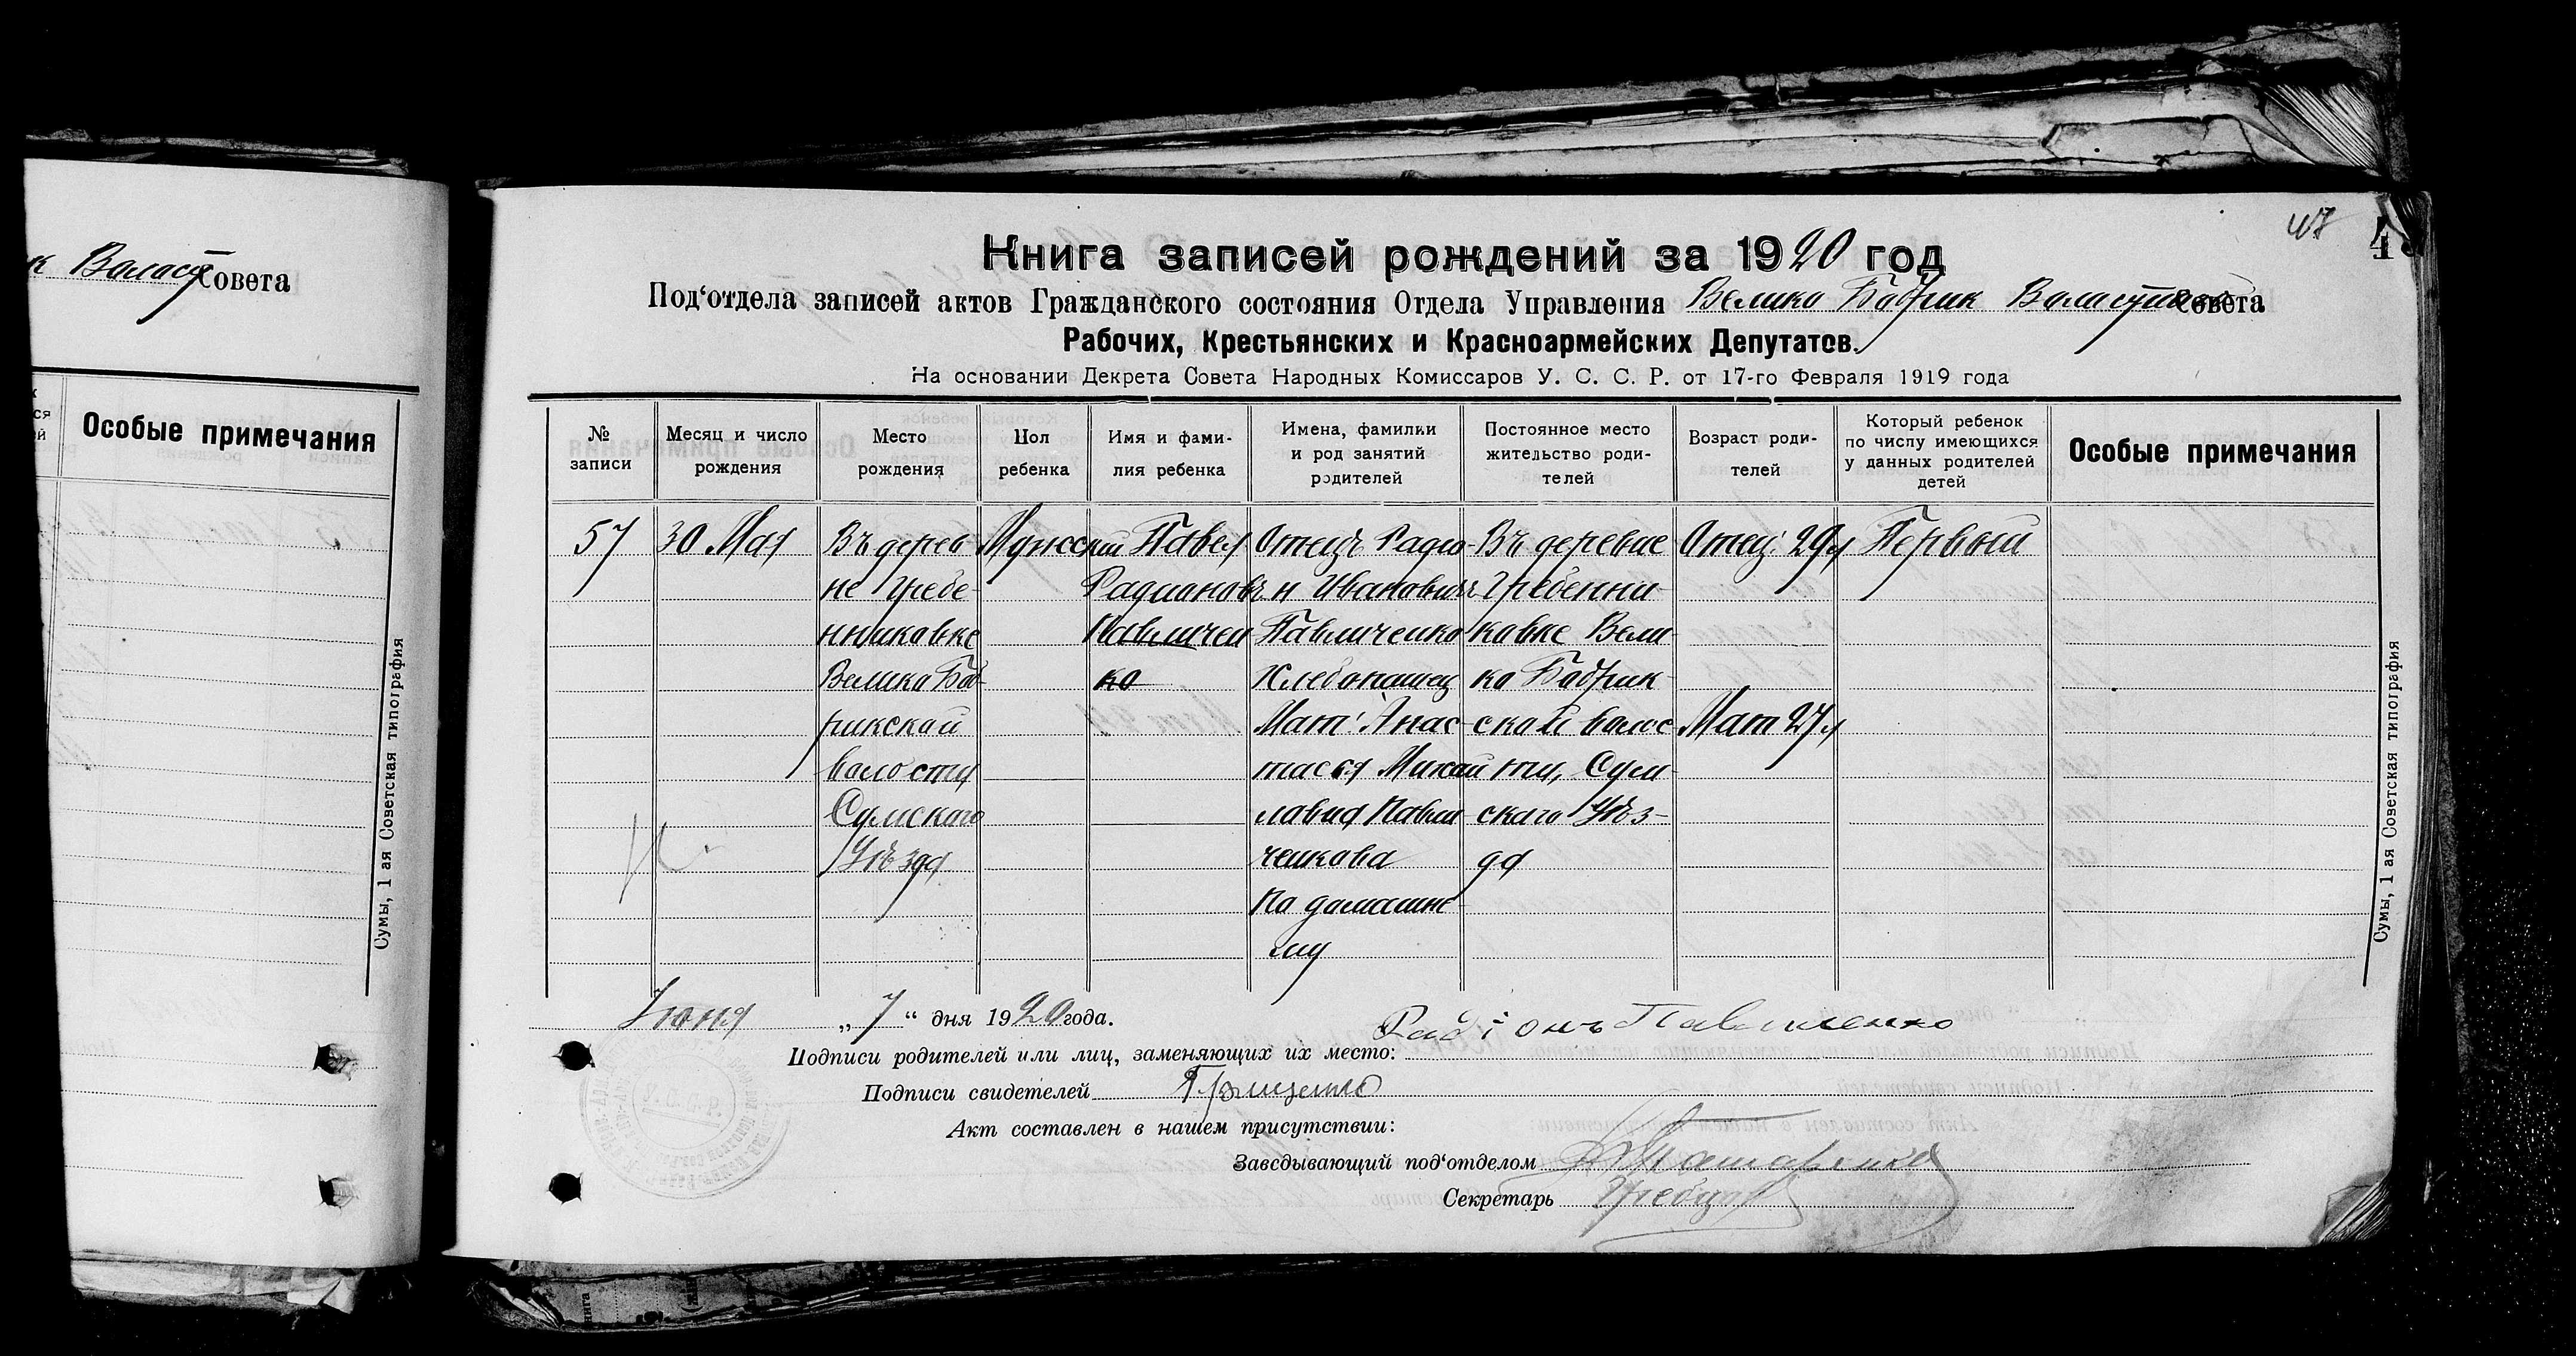 к Воласт Совета
Особые примечания
Сумы, 1 ая Советская типография
47
4
Книга записей рождений за 1920 год
Под‘отдела записей актов Гражданского состояния Отдела Управления Велико Бобрик Воластного Совета
Рабочих, Крестьянских и Красноармейских Депутатов.
На основании Декрета Совета Народных Комиссаров У. С. С. Р. от 17-го Февраля 1919 года
№ записи
Месяц и число рождения
Место рождения
Пол ребенка
Имя и фами-
лия ребенка
Имена, фамилии
и род занятий
родителей
Постоянное место
жительство роди-
телей
Возраст роди-
телей
Который ребенок
по числу имеющихся
у данных родителей
детей
Особые примечания
57
30 Мая
Въ дерев-
не Гребе-
нниковке
Велико Боб-
рикской
волости
Сумскаго
Уѣзда
Мужский
Павел
Радионовъ
Павличен
ко
Отецъ Радио-
н Ивановичъ
Павличенко
Хлебопашец
Мат: Анас-
тасья Михай
ловна Павли
ченкова
По домашне-
му
Въ деревне
Гребенни-
ковке Вели
ко Бобрик-
ской волос
ти, Сум-
скаго Уѣз-
да
Отец: 29 л
Мат 27 л
Первый
Сумы, 1 ая Советская типография
Июня „7“ дня 1920 года.
Радіонъ Павличенко
Подписи родителей или лиц, заменяющих их место:
Подписи свидетелей Грищенко
Акт составлен в нашем присутствии:
Заведывающий под‘отделом
Секретарь
У.С.С.Р.